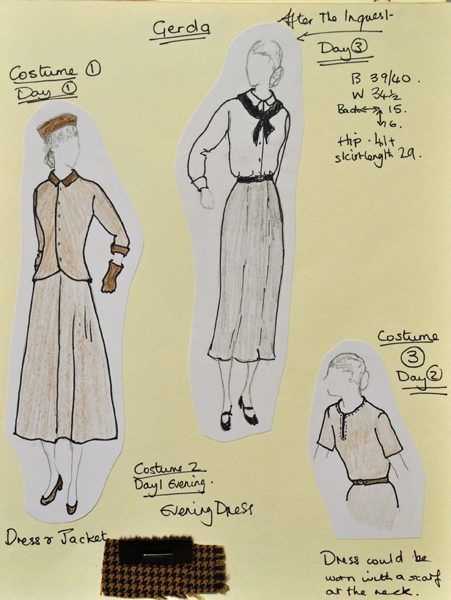 Gerda
After The Inquest
Day ③
Costume ①
Day ①
B 39/40.
W 34½
Back ↔ 15.
↕ 16.
Hip . 41+
skirtlength 29.
Costume
③
Day ②
Costume 2
Day 1 Evening.
Evening Dress
Dress & Jacket
Dress could be
worn with a scarf
at the neck.